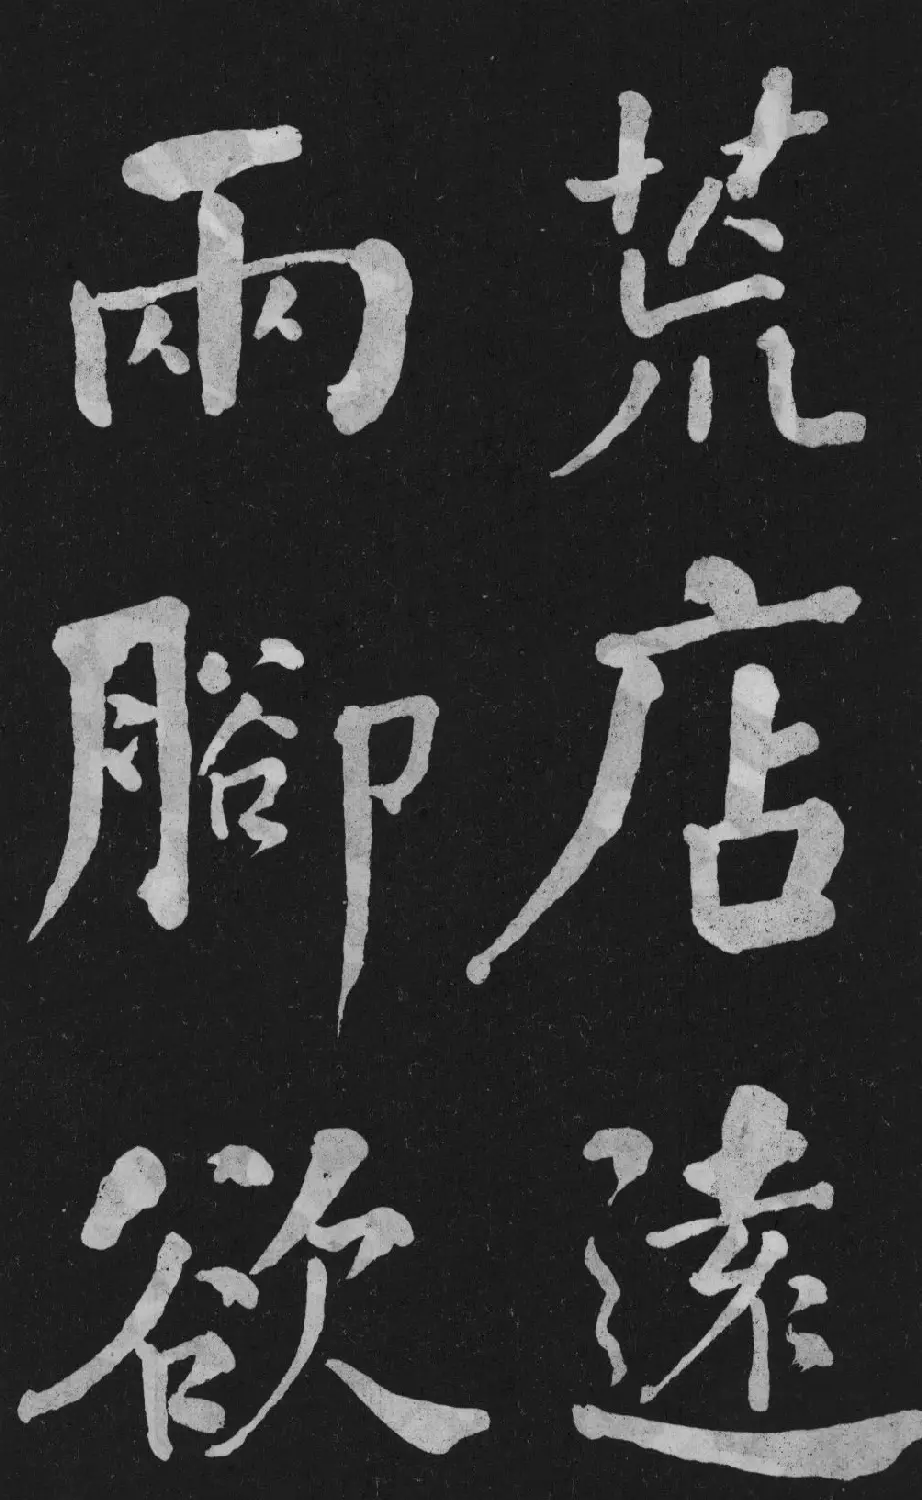 荒店遠
雨腳欲